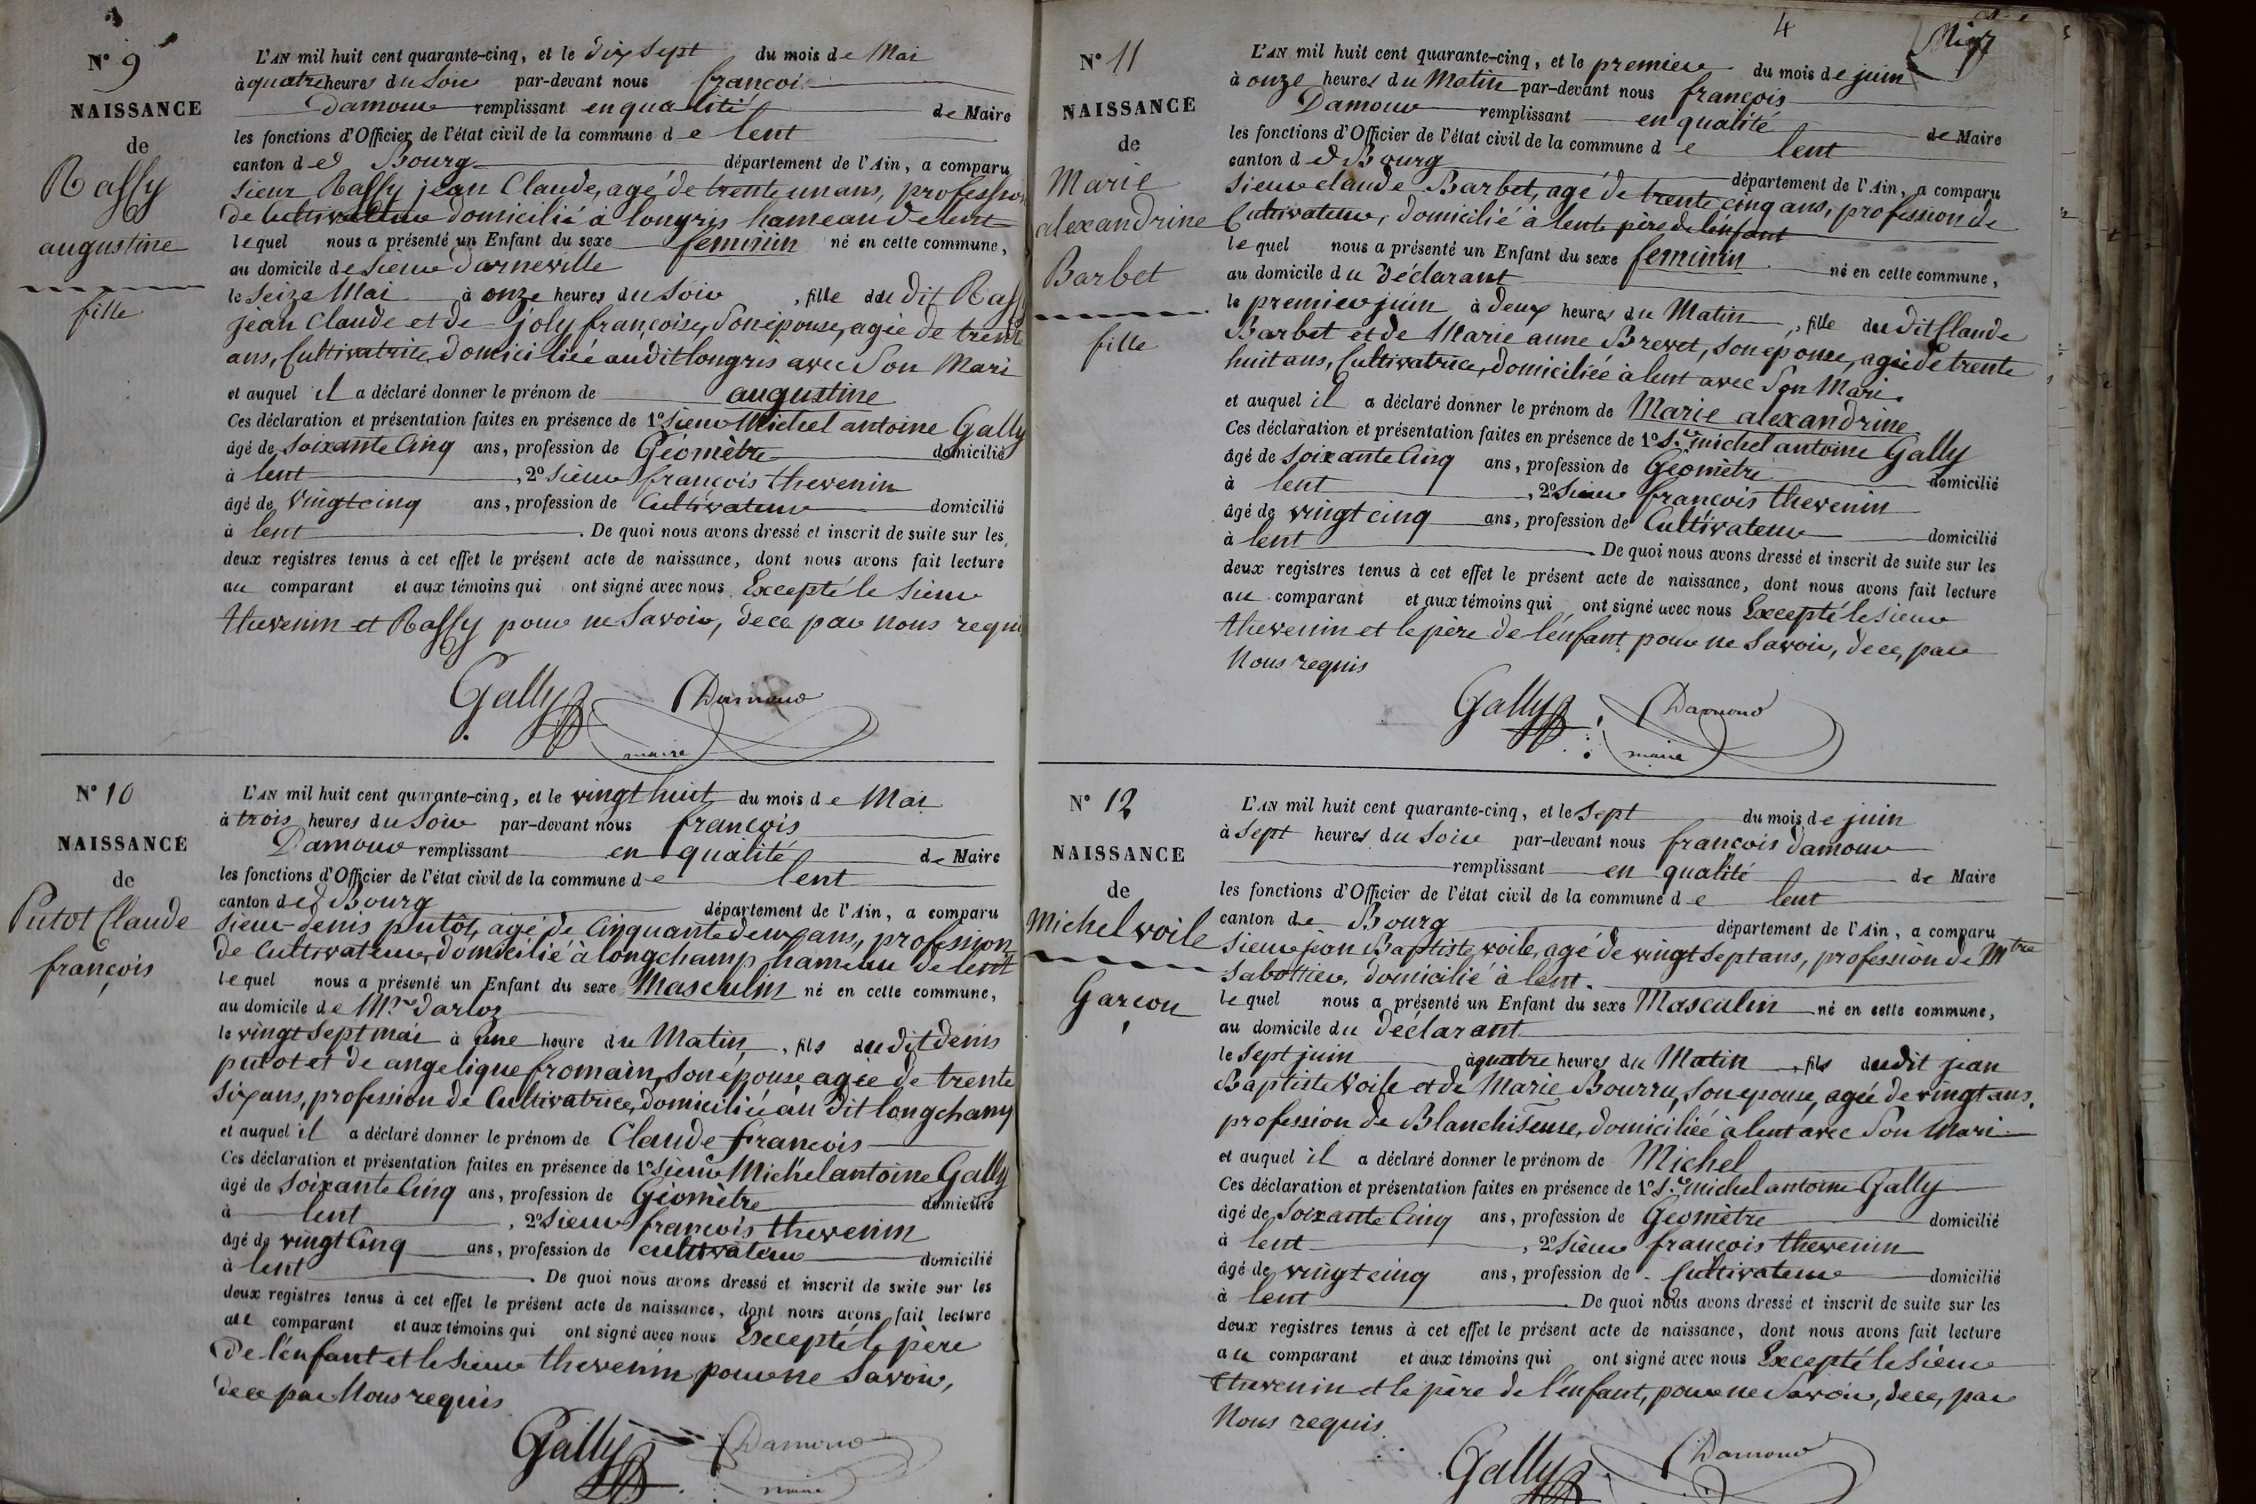 N° 9
NAISSANCE
de
Raffy
augustine
fille
L'AN mil huit cent quarante-cinq, et le dix sept du mois de Mai
à quatre heures du Soir par-devant nous françois
Damour remplissant en qualité de Maire
les fonctions d'Officier de l'état civil de la commune de lent
canton de Bourg département de l'Ain, a comparu
sieur Raffy jean Claude, agé de trente un ans, profession
de Cultivateur domicilié à longris hameau de lent
lequel nous a présenté un Enfant du sexe feminin né en cette commune,
au domicile de sieur Darneville
le Seize Mai à onze heures du Soir, fille du dit Raffy
jean Claude et de joly françoise, Son épouse, agée de trente
ans, Cultivatrice, domiciliée audit longris avec Son Mari
et auquel il a déclaré donner le prénom de augustine
Ces déclaration et présentation faites en présence de 1° sieur Michel antoine Gally
âgé de soixante Cinq ans, profession de Géomètre domicilié
à lent, 2° sieur françois thevenin
âgé de vingt cinq ans, profession de Cultivateur domicilié
à lent. De quoi nous avons dressé et inscrit de suite sur les
deux registres tenus à cet effet le présent acte de naissance, dont nous avons fait lecture
au comparant et aux témoins qui ont signé avec nous Excepté le sieur
thevenin et Raffy pour ne Savoir, de ce par nous requis
Gally Damour
maire
N° 10
NAISSANCE
de
Putot Claude
françois
L'AN mil huit cent quarante-cinq, et le vingt huit du mois de Mai
à trois heures du Soir par-devant nous françois
Damour remplissant en qualité de Maire
les fonctions d'Officier de l'état civil de la commune de lent
canton de Bourg département de l'Ain, a comparu
sieur denis putôt, agé de Cinquante deux ans, profession
de Cultivateur, domicilié à longchamp hameau de lent
lequel nous a présenté un Enfant du sexe Masculin né en cette commune,
au domicile de Mr Darloz
le vingt sept mai à une heure du Matin, fils du dit denis
putot et de angelique fromain, son épouse, agée de trente
six ans, profession de Cultivatrice, domiciliée au dit longchamp
et auquel il a déclaré donner le prénom de Claude françois
Ces déclaration et présentation faites en présence de 1° sieur Michel antoine Gally
âgé de soixante Cinq ans, profession de Géomètre domicilié
à lent, 2° sieur françois thevenin
âgé de vingt Cinq ans, profession de cultivateur domicilié
à lent. De quoi nous avons dressé et inscrit de suite sur les
deux registres tenus à cet effet le présent acte de naissance, dont nous avons fait lecture
au comparant et aux témoins qui ont signé avec nous Excepté le père
de l'enfant et le sieur thevenin pour ne Savoir,
de ce par Nous requis
Gally Damour
maire
4
N° 11
NAISSANCE
de
Marie
alexandrine
Barbet
fille
L'AN mil huit cent quarante-cinq, et le premier du mois de juin
à onze heures du Matin par-devant nous françois
Damour remplissant en qualité de Maire
les fonctions d'Officier de l'état civil de la commune de lent
canton de Bourg département de l'Ain, a comparu
sieur claude Barbet, agé de trente cinq ans, profession de
Cultivateur, domicilié à lent père de l'enfant
lequel nous a présenté un Enfant du sexe feminin né en cette commune,
au domicile du déclarant
le premier juin à deux heures du Matin, fille du dit Claude
Barbet et de Marie anne Brevet, son épouse, agée de trente
huit ans, Cultivatrice, domiciliée à lent avec Son Mari
et auquel il a déclaré donner le prénom de Marie alexandrine
Ces déclaration et présentation faites en présence de 1° Sr michel antoine Gally
âgé de soixante Cinq ans, profession de Géomètre domicilié
à lent, 2° sieur françois thevenin
âgé de vingt cinq ans, profession de Cultivateur domicilié
à lent. De quoi nous avons dressé et inscrit de suite sur les
deux registres tenus à cet effet le présent acte de naissance, dont nous avons fait lecture
au comparant et aux témoins qui ont signé avec nous Excepté le sieur
thevenin et le père de l'enfant pour ne Savoir, de ce, par
Nous requis
Gally Damour
maire
N° 12
NAISSANCE
de
Michel voile
Garçon
L'AN mil huit cent quarante-cinq, et le sept du mois de juin
à sept heures du Soir par-devant nous françois damour
remplissant en qualité de Maire
les fonctions d'Officier de l'état civil de la commune de lent
canton de Bourg département de l'Ain, a comparu
sieur jean Baptiste voile, agé de vingt sept ans, profession de Mtre
Sabottier, domicilié à lent.
lequel nous a présenté un Enfant du sexe Masculin né en cette commune,
au domicile du déclarant
le sept juin à quatre heures du Matin, fils dudit jean
Baptiste Voile et de Marie Bourru, Son epouse, agée de vingt ans,
profession de Blanchisseuse, domiciliée à lent avec Son Mari
et auquel il a déclaré donner le prénom de Michel
Ces déclaration et présentation faites en présence de 1° Sr michel antoine Gally
âgé de soixante Cinq ans, profession de Géomètre domicilié
à lent, 2° sieur françois thevenin
âgé de vingt cinq ans, profession de Cultivateur domicilié
à lent. De quoi nous avons dressé et inscrit de suite sur les
deux registres tenus à cet effet le présent acte de naissance, dont nous avons fait lecture
au comparant et aux témoins qui ont signé avec nous Excepté le sieur
thevenin et le père de l'enfant, pour ne Savoir, de ce, par
Nous requis
Gally Damour